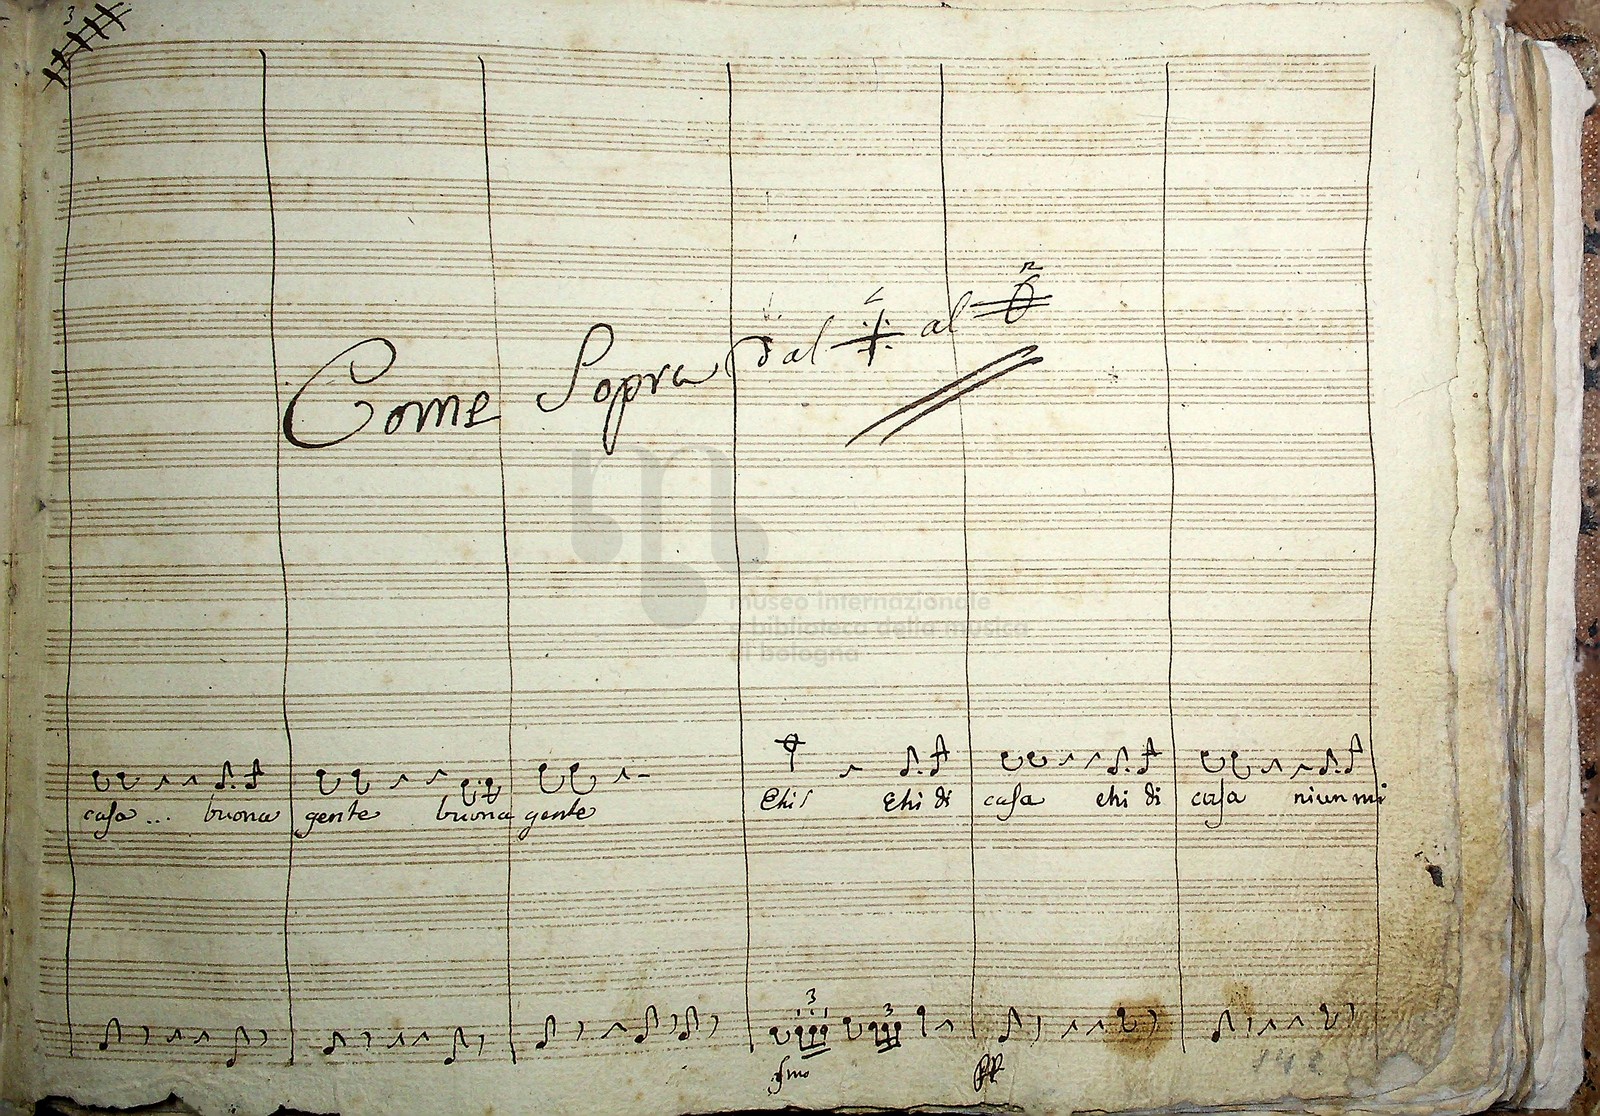 3
Come Sopra dal al
museo internazionale
e biblioteca della musica
di bologna
casa... buona gente buona gente Ehi! Ehi di casa ehi di casa niun mi
3 3
fmo pp